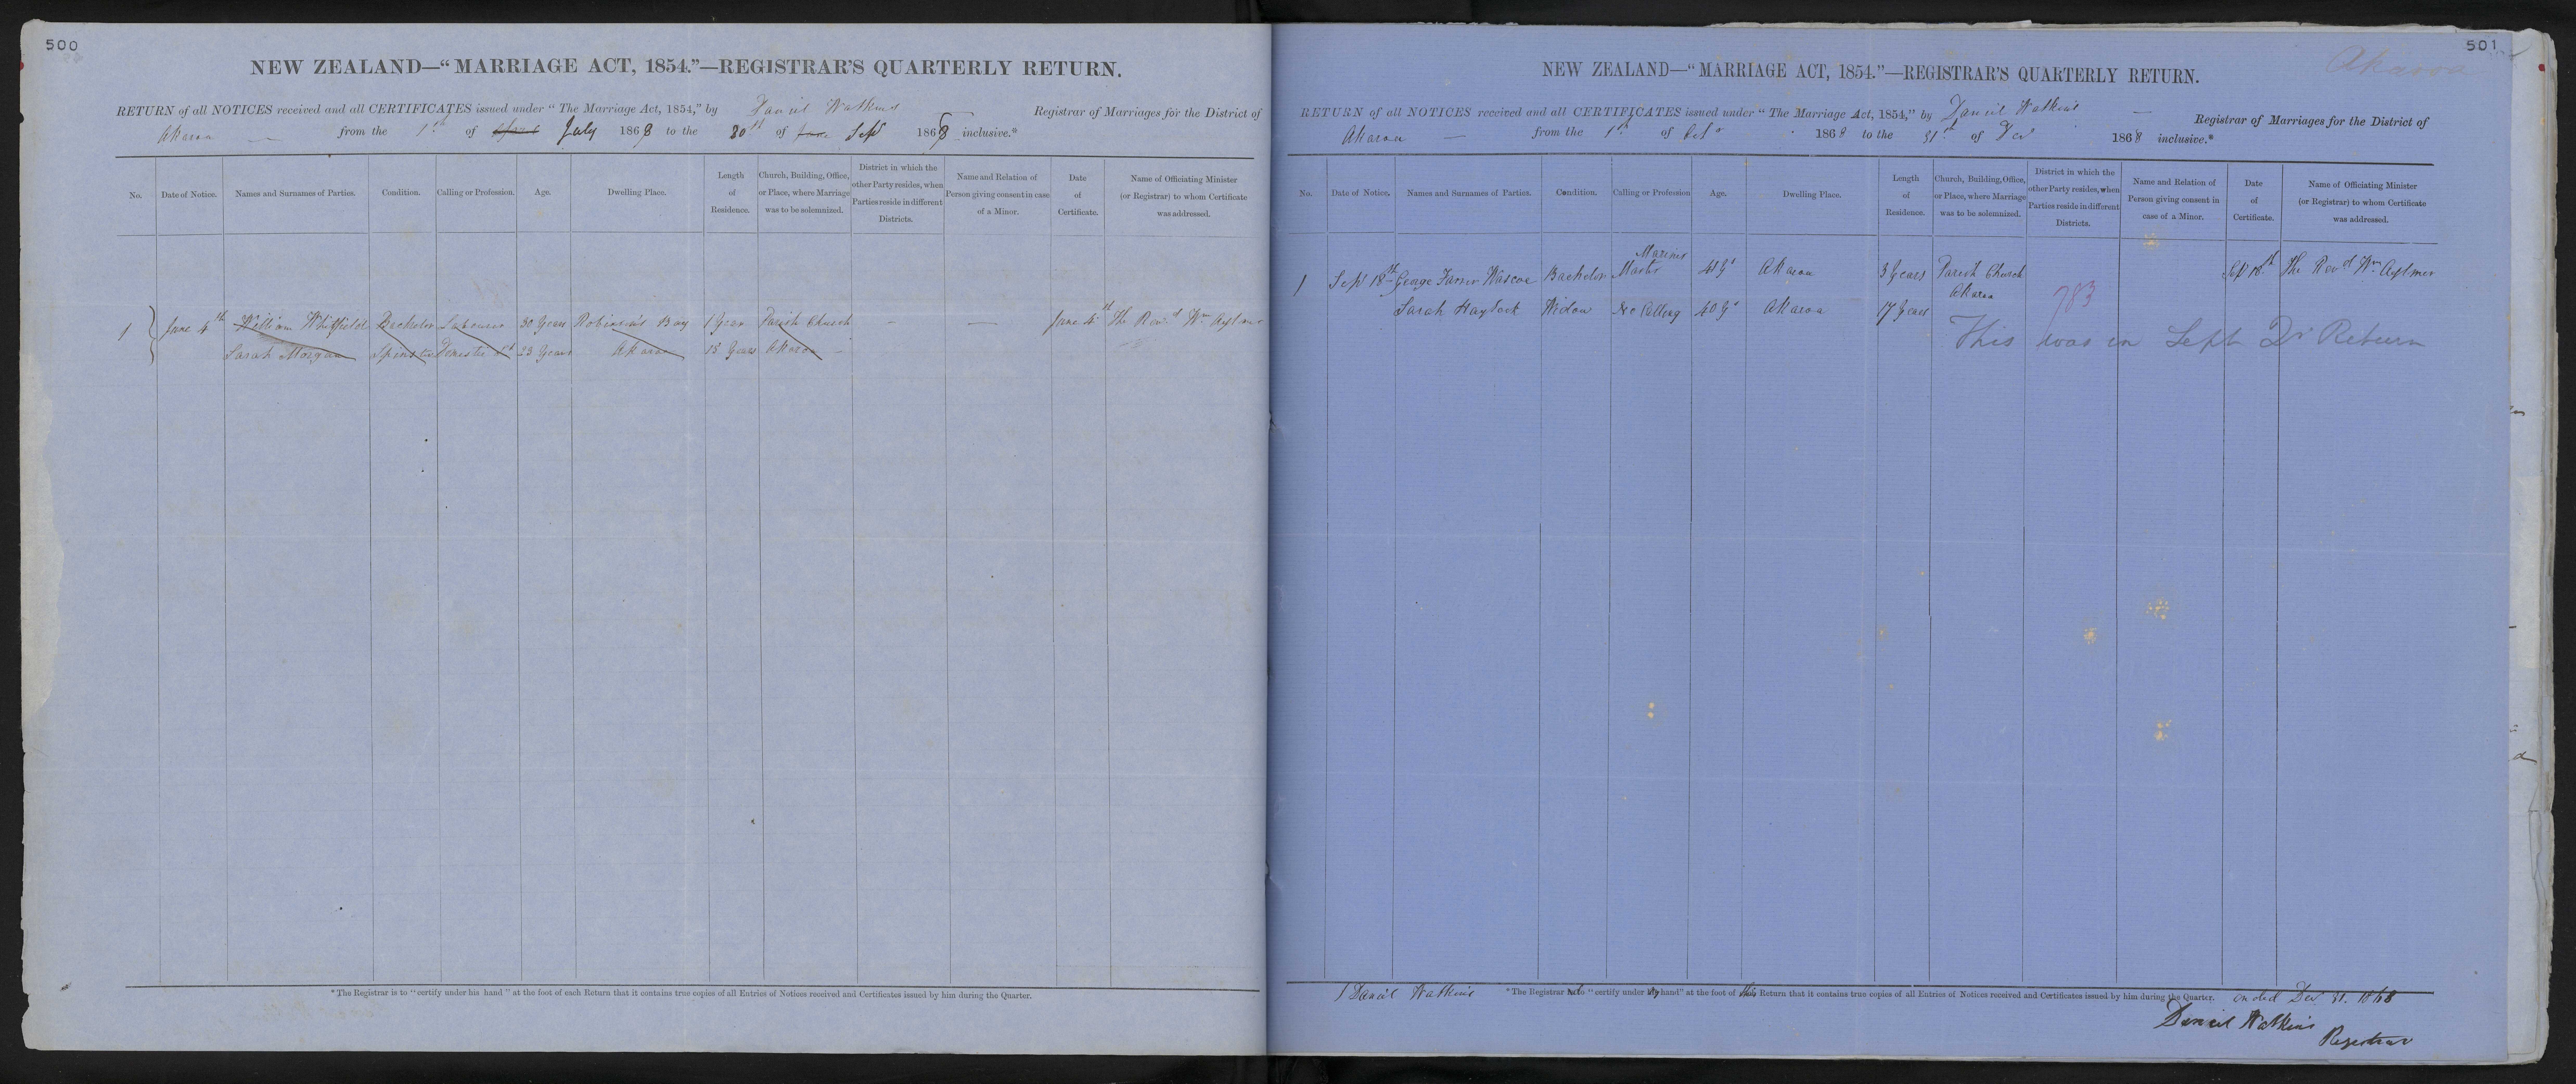 500
NEW ZEALAND—“MARRIAGE ACT, 1854.”—REGISTRAR'S QUARTERLY RETURN.
RETURN of all NOTICES received and all CERTIFICATES issued under “The Marriage Act, 1854,” by Daniel Watkins Registrar of Marriages for the District of
Akaroa — from the 1st of April July 1868 to the 30th of June Sept 1868 inclusive.*
No. Date of Notice. Names and Surnames of Parties. Condition. Calling or Profession. Age. Dwelling Place. Length of Residence. Church, Building, Office, or Place, where Marriage was to be solemnized. District in which the other Party resides, when Parties reside in different Districts. Name and Relation of Person giving consent in case of a Minor. Date of Certificate. Name of Officiating Minister (or Registrar) to whom Certificate was addressed.
1 June 4th William Whitfield Bachelor Labourer 30 Years Robinson's Bay 1 Year Parish Church — — June 4th The Revd Wm Aylmer
Sarah Morgan Spinster Domestic Svt 23 Years Akaroa 15 Years Akaroa —
*The Registrar is to “certify under his hand” at the foot of each Return that it contains true copies of all Entries of Notices received and Certificates issued by him during the Quarter.
501
Akaroa
NEW ZEALAND—“MARRIAGE ACT, 1854.”—REGISTRAR'S QUARTERLY RETURN.
RETURN of all NOTICES received and all CERTIFICATES issued under “The Marriage Act, 1854,” by Daniel Watkins — Registrar of Marriages for the District of
Akaroa — from the 1st of Octr 1868 to the 31st of Dec 1868 inclusive.*
No. Date of Notice. Names and Surnames of Parties. Condition. Calling or Profession Age. Dwelling Place. Length of Residence. Church, Building, Office, or Place, where Marriage was to be solemnized. District in which the other Party resides, when Parties reside in different Districts. Name and Relation of Person giving consent in case of a Minor. Date of Certificate. Name of Officiating Minister (or Registrar) to whom Certificate was addressed.
1 Sept 18th George Farrer Wascoe Bachelor Master Mariner 41 Ys Akaroa 3 Years Parish Church Sept 18th The Revd Wm Aylmer
Akaroa 783
Sarah Haydock Widow No Calling 40 Ys Akaroa 17 Years
This was in Sept Qr Return
I Daniel Watkins *The Registrar do “certify under my hand” at the foot of this Return that it contains true copies of all Entries of Notices received and Certificates issued by him during the Quarter. ended Dec 31. 1868
Daniel Watkins
Registrar